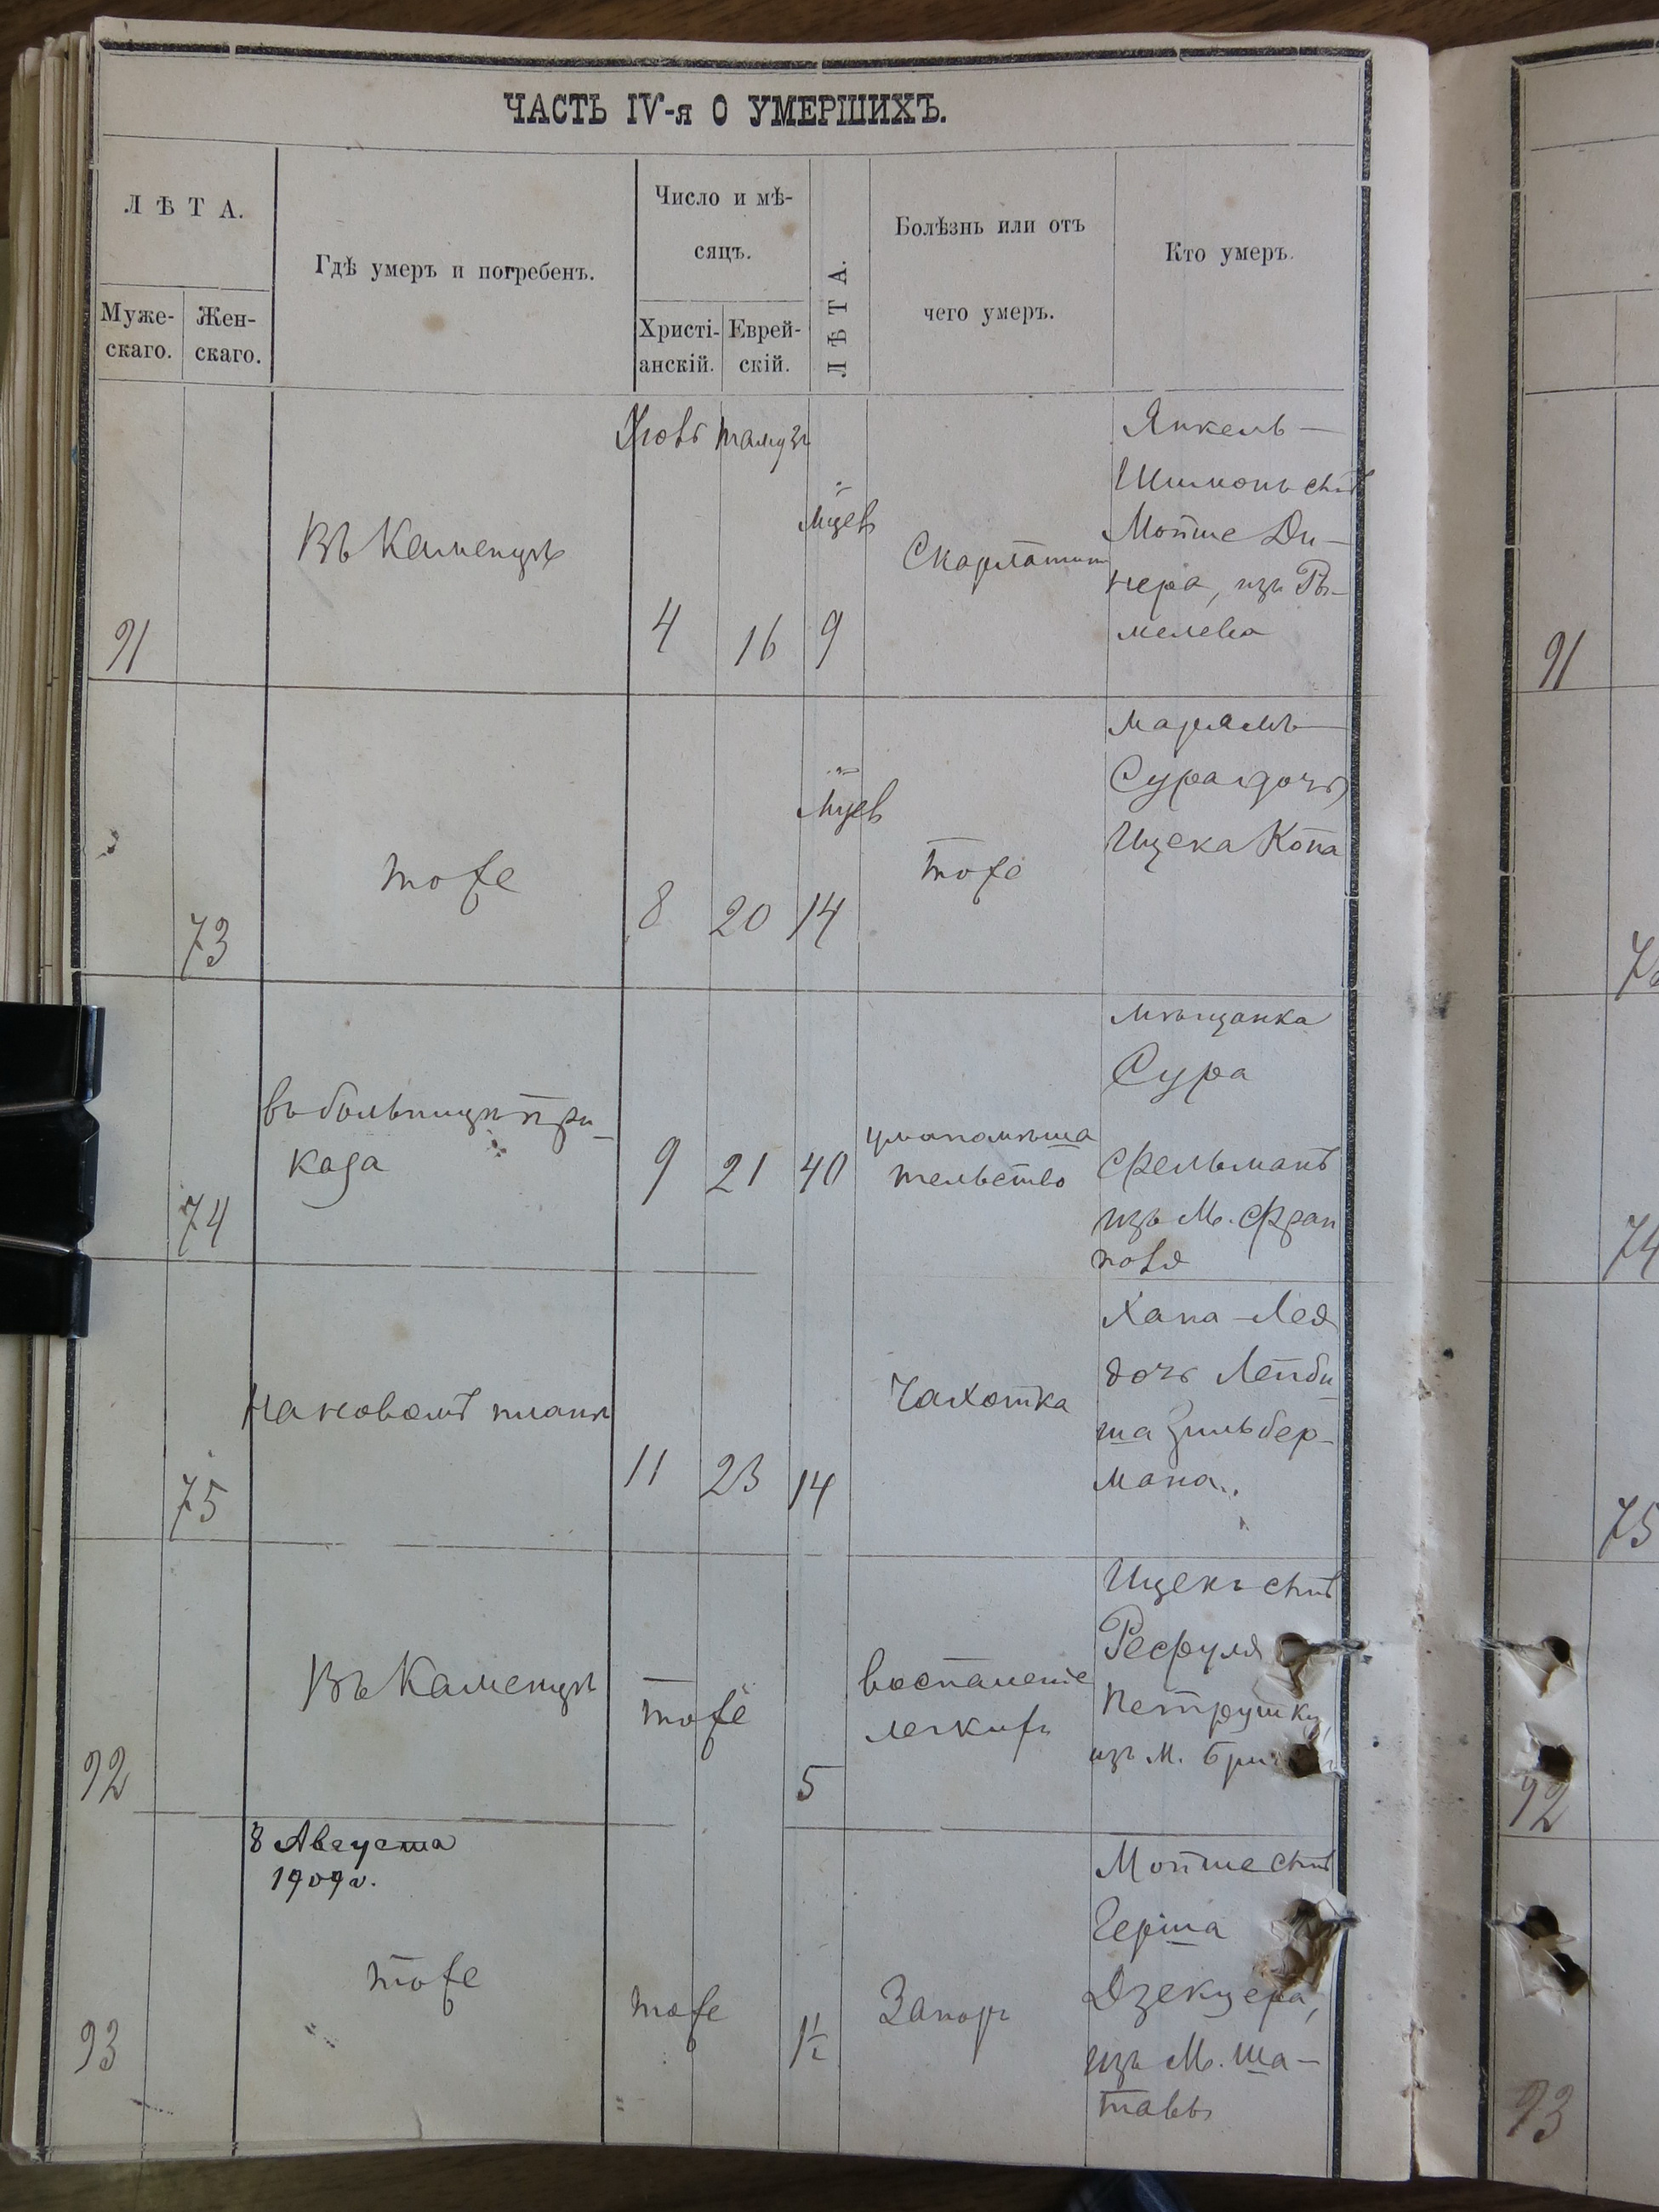 ЧАСТЬ IV-я О УМЕРШИХЪ.
ЛѢТА.
Муже-
скаго.
Жен-
скаго.
Гдѣ умеръ и погребенъ.
Число и мѣ-
сяцъ.
Христі-
анскій.
Еврей-
скій.
ЛѢТА.
Болѣзнь или отъ
чего умеръ.
Кто умеръ.
Іюль Тамузъ
91
Въ Каменцѣ
4
16
мцев
9
Скарлатин
Янкель —
Шимонъ сынъ
Мойше Ди-
нера, изъ
мелева
73
тоже
8
20
мцев
14
тоже
Марьямъ —
Сура дочь
Ицека Копа
74
въ больницѣ при-
каза
9
21
40
умопомѣша
тельство
мѣщанка
Сура
Фельманъ
изъ М. Фрам
поля
75
На новомъ планѣ
11
23
14
Чахотка
Хана-Лея
дочь Лейби
ша Зильбер-
мана..
92
Въ Каменцѣ
тоже
5
воспаленіе
легкихъ
Ицекъ сынъ
Рефуля
Петрушки,
изъ М.
8 Августа
1909 г.
93
тоже
тоже
1½
Запоръ
Мойше сынъ
Герша
Дзекцера,
изъ М. Ша-
тавы
91
74
75
92
93